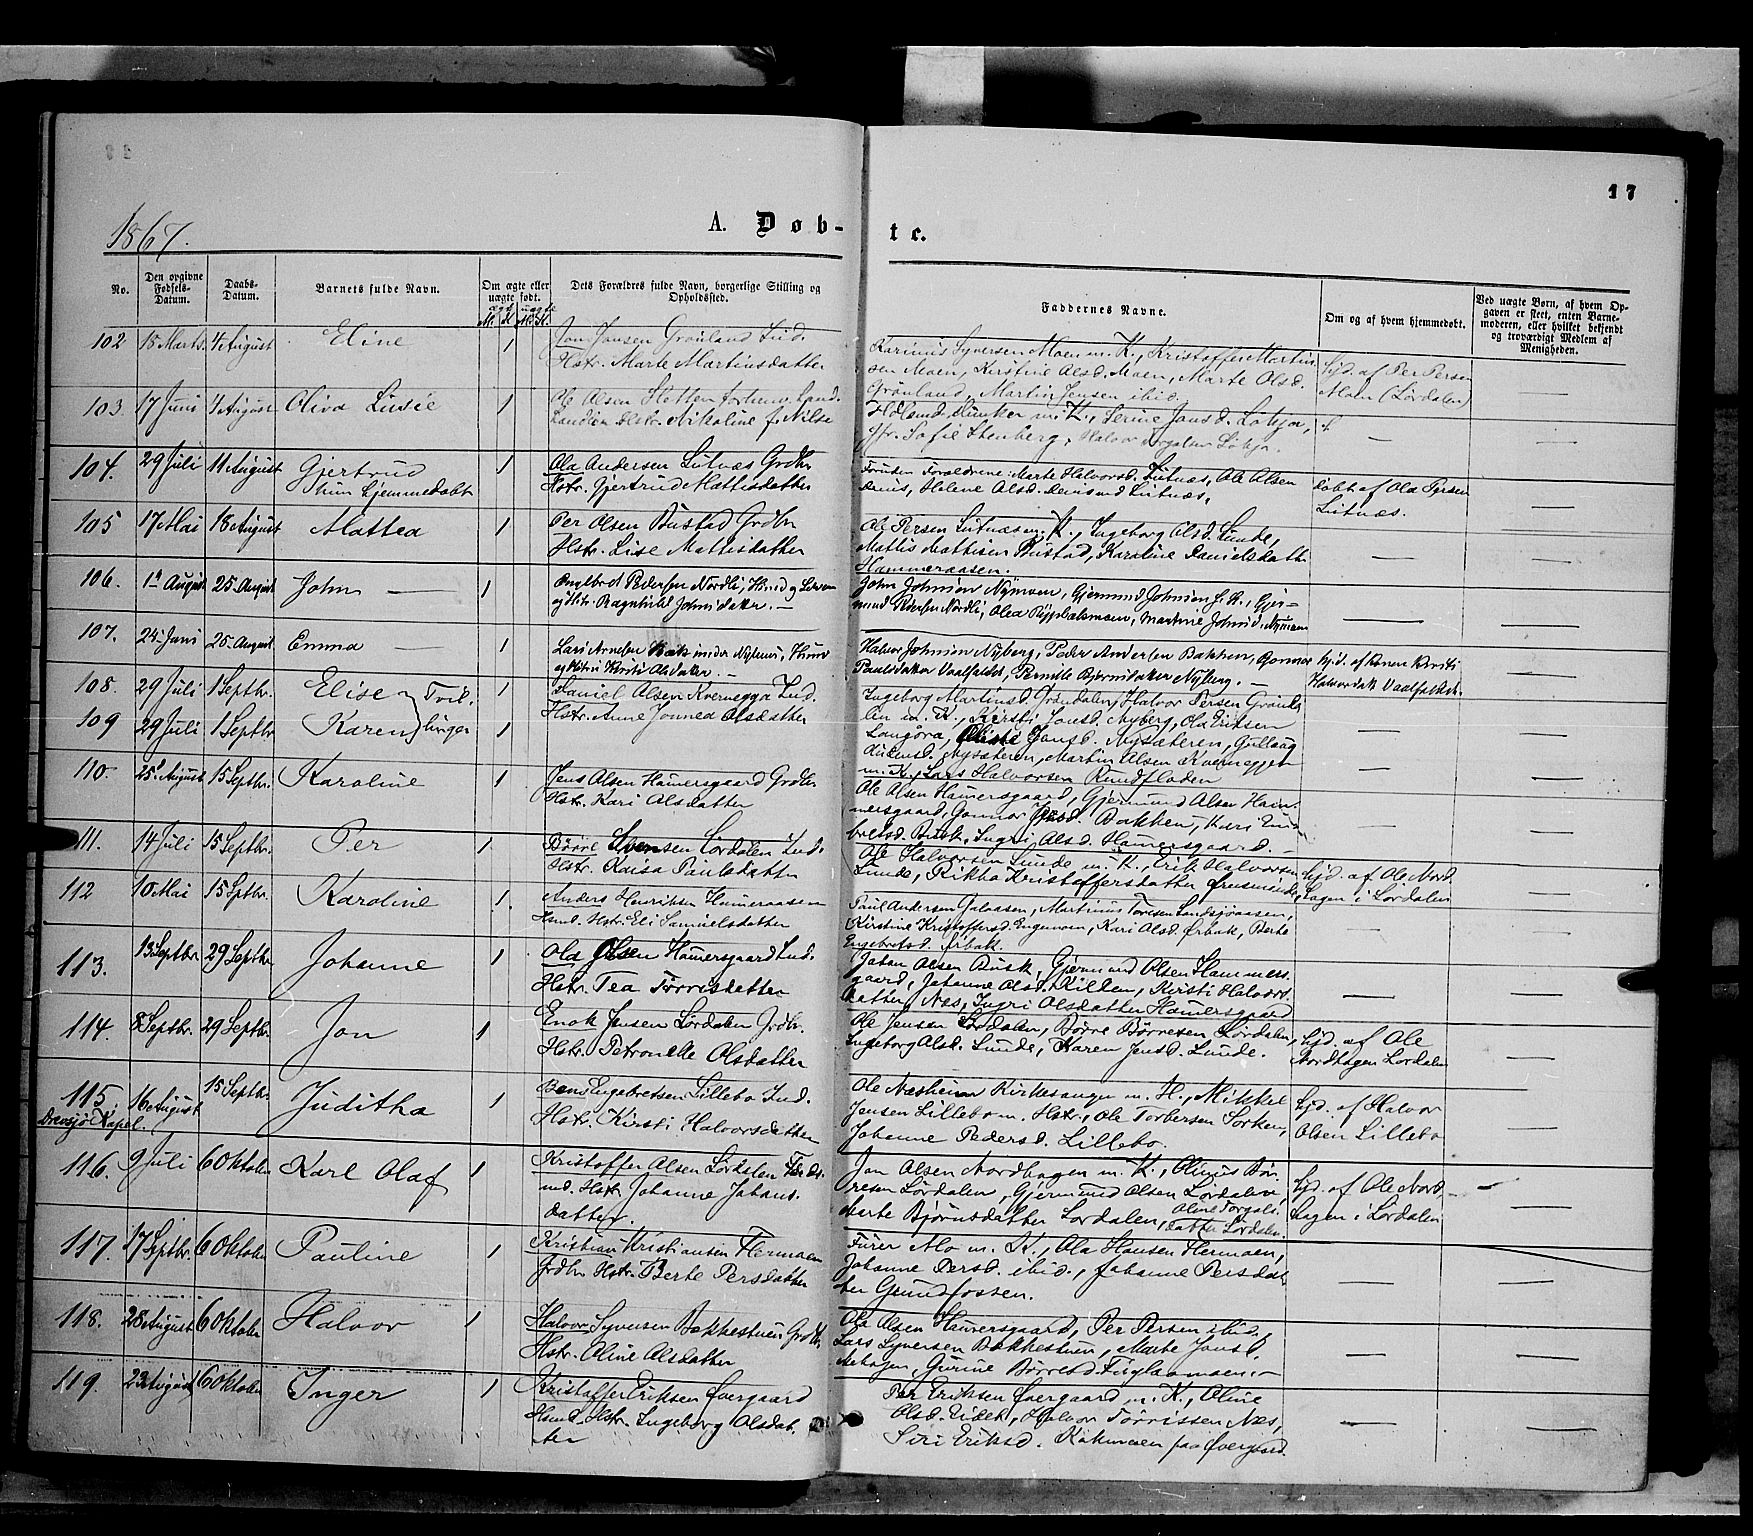 17
1867.
A. Døb-
te.
No.
Den opgivne Fødsels-Datum.
Daabs-Datum.
Barnets fulde Navn.
Om ægte eller uægte født.
ægte uægte
M. K. M. K.
Dets Forældres fulde Navn, borgerlige Stilling og Opholdssted.
Faddernes Navne.
Om og af hvem hjemmedøbt.
Ved uægte Børn, af hvem Opgaven er skeet, enten Barnemoderen, eller hvilket bekjendt og troværdigt Medlem af Menigheden.
102 18 Marts 4 August Eline 1 Jon Jensen Grönland Ind.
Hstr. Marte Martinusdatter
Karinius Syversen Moen m. K., Kristoffer Martin
sen Moen, Kirstine Olsd. Moen, Marte Olsd.
Grönland, Martin Jensen ibid.
hjd. af Per Persen
Moen (Lördalen)
103. 17 Juni 4 August Oliva Lusie 1 Ole Olsen Sletten
Hstr. Nikoline f. Nilse
m. K., Serine Jonsd. Lökja,
Sofie Stenberg, Halvor Lökja.
104. 29 Juli 11 August Gjertrud 1 Ola Andersen Lutnæs Grdbr
hun hjemmedøbt
Hstr. Gjertrud Mattisdatter
Foruden Forældrene: Marte Halvorsd. Lutnæs, Ole Olsen
Helene Olsd. Lutnæs,
døbt af Ola Persen
Lutnæs.
105 17 Mai 18 August Mattea 1 Per Olsen Bustad Grdbr
Hstr. Lise Mattisdatter
Ole Persen Lutnæs m. K., Ingeborg Olsd. Lunde,
Mattis Mattisen Bustad, Karoline Danielsdatter
Hammeraasen.
106. 1 August 25 August John 1 Engebret Pedersen Nordli,
og Hstr. Ragnhild Johnsdatter. —
John Johnsen Nymoen, Gjermund Johnsen f. K., Gjer-
mund Pedersen Nordli, Olea Martine Johnsd. Nymoen
107. 24 Juni 25 August Emma 1 Lars Arnesen under
og Hstru Kirsti Olsdatter. —
Halvor Johnsen Nyberg, Peder Andersen Bakken, Gonnor
Paulsdatter Vaalfaldet, Pernille Bjørnsdatter Nyberg. —
hjd. af Konen Kirsti
Halvorsdatt Vaalfaldet.
108. 29 Juli 1 Septbr. Elise Tvil- 1 Daniel Olsen Kvernegga Ind.
109 29 Juli 1 Septbr Karen linger 1 Hstr. Anne Jonnea Olsdatter
Ingeborg Martinsd. Jöndalen, Halvor Persen Grönli
m. K., Kersti Jonsd. Nyberg, Ola Eriksen
Langöra, Jonsd. Nysæteren, Gullaug
Nysæteren, Martin Olsen Kverneggen
m. K., Lars Halvorsen Rundfloden
110. 25 August 15 Septbr. Karoline 1 Jens Olsen Hamersgaard Grdbr
Hstr. Kari Olsdatter
Ole Olsen Hamersgaard, Gjermund Olsen Ham-
mersgaard, Gonnor Bakken, Kari Em-
bretsd. Busk, Ingri Olsd. Hamersgaard. —
111. 14 Juli 15 Septbr. Per 1 Börre Svensen Lördalen Ind.
Hstr. Kaisa Paulsdatter
Ole Halvorsen Lunde m. K., Erik Halvorsen
Lunde, Rikka Kristoffersdatter
hjd. af Ole Nord
hagen i Lördalen
112 10 Mai 15 Sptbr. Karoline 1. Anders Henriksen Hameraasen
Hsmd. Hstr. Eli Samuelsdatter
Paul Andersen Galaasen, Martinus Toresen Landsjöaasen,
Kirstine Kristoffersd. Engmoen, Kari Olsd. Örbak, Berte
Engebretsd. Örbak.
113. 13 Septbr 29 Septbr Johanne 1 Ola Olsen Hamersgaard Ind.
Hstr. Tea Törrisdatter
Johan Olsen Busk, Gjermund Olsen Hammers-
gaard, Johanne Olsd. Killen, Kirsti Halvors-
datter Næs, Ingri Olsdatter Hamersgaard
114. 8 Septbr. 29 Septbr. Jon 1 Enok Jensen Lördalen Grdbr.
Hstr. Petronelle Olsdatter
Ole Jensen Lördalen, Börre Börresen Lördalen,
Ingeborg Olsd. Lunde, Karen Jensd. Lunde.
hjd. af Ole
Nordhagen Lördalen
115. 16 August 15 Septbr. Juditha 1 Engebretsen Lillebo Ind.
Drevsjö Kapel.
Hstr. Kirsti Halvorsdatter
Ole Næsheim Kirkesanger m. H., Mikkel
Jensen Lillebo m. Hstr., Ole Torbersen Sorken,
Johanne Pedersd. Lillebo.
hjd. af Halvor
Olsen Lillebo
116. 9 Juli 6 Oktober Karl Olaf 1 Kristoffer Olsen Lördalen
Hstr. Johanne Johans-
datter.
Jon Olsen Nordhagen m. K., Olinus Bör-
resen Lördalen, Gjermund Olsen Lördalen
Marte Björnsdatter Lördalen, Oline Torgals-
datter Lördalen.
hjd. af Ole Nord-
hagen i Lördalen
117. 17 Septbr. 6 Oktober Pauline 1 Kristian Kristiansen Hermoen
Grdbr Hstr. Berte Persdatter
Furer Mo m. K., Ola Hansen Hermoen,
Johanne Persd. ibid., Johanne Persdat
ter Grundfossen.
118. 28 August 6 Oktober Halvor 1 Halvor Syversen Bakkestuen Grdbr,
Hstr. Oline Olsdatter
Ola Olsen Hamersgaard, Per Persen ibid.
Lars Syversen Bakkestuen, Marte Jonsd.
Gurine Börresd. Fuglaamoen. —
119. 23 August 6 Oktober Inger 1 Kristoffer Eriksen Övergaard
Hsmd. Hstr. Ingeborg Olsdat-
ter
Per Eriksen Övergaard m. K., Oline
Olsd. Eidet, Halvor Törrissen Næs,
Siri Eriksd. Kokmoen paa Övergaard.